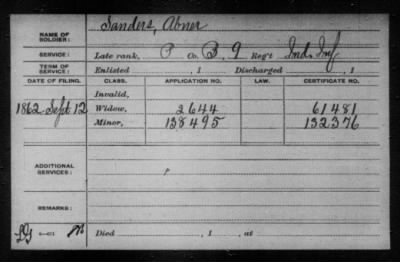 Sanders, Abner
NAME OF SOLDIER:
SERVICE: Late rank, P Co. B. 9 Reg't Ind. Inf
TERM OF SERVICE: Enlisted , 1 Discharged , 1
DATE OF FILING. CLASS. APPLICATION NO. LAW. CERTIFICATE NO.
Invalid,
1862 Sept 12 Widow, 2644 61481
Minor, 138495 132376
ADDITIONAL SERVICES:
REMARKS:
Died , 1 , at